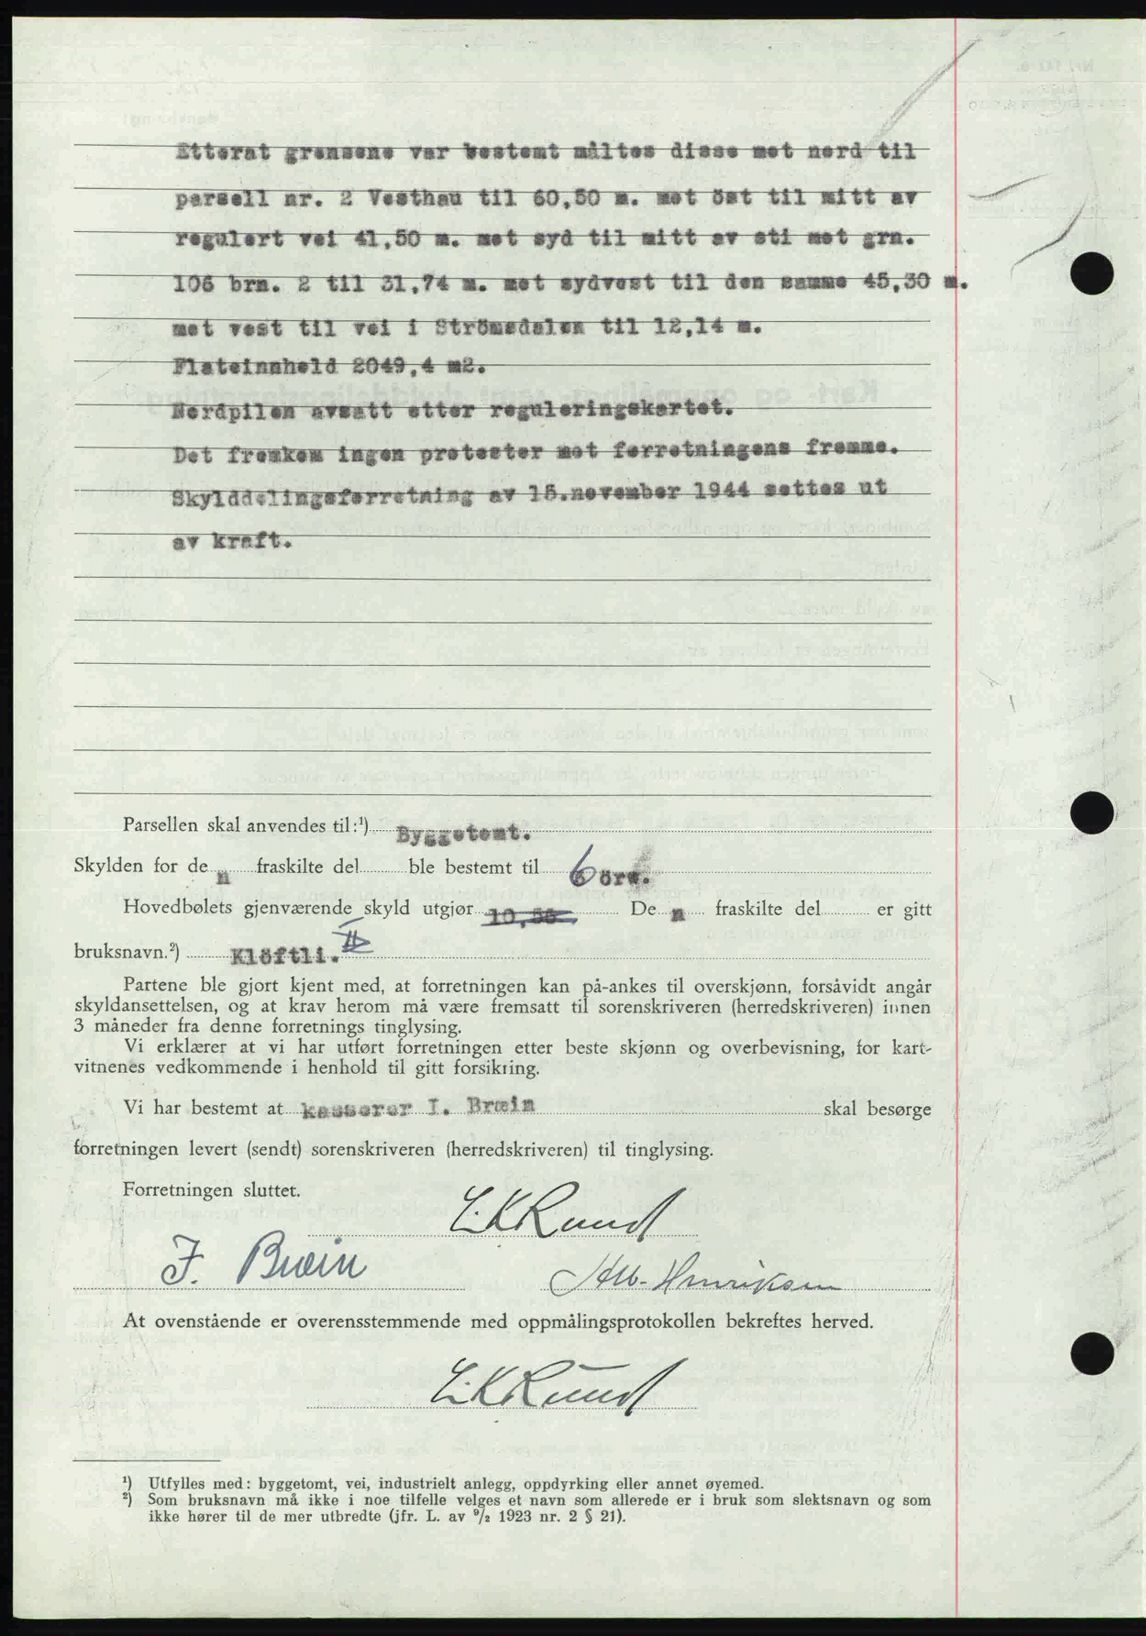 Etterat grensene var bestemt måltes disse mot nord til
parsell nr. 2 Vesthau til 60,50 m. mot öst til mitt av
regulert vei 41,50 m. mot syd til mitt av sti mot grn.
106 brn. 2 til 31,74 m. mot sydvest til den samme 45,30 m.
mot vest til vei i Strömsdalen til 12,14 m.
Flateinnhold 2049,4 m2.
Nordpilen avsatt etter reguleringskartet.
Det fremkom ingen protester mot forretningens fremme.
Skylddelingsforretning av 15.november 1944 settes ut
av kraft.
Parsellen skal anvendes til:¹) Byggetomt.
Skylden for de n fraskilte del ble bestemt til 6 öre.
Hovedbølets gjenværende skyld utgjør De n fraskilte del er gitt
bruksnavn.²) Klöftli. II
Partene ble gjort kjent med, at forretningen kan på-ankes til overskjønn, forsåvidt angår
skyldansettelsen, og at krav herom må være fremsatt til sorenskriveren (herredskriveren) innen
3 måneder fra denne forretnings tinglysing.
Vi erklærer at vi har utført forretningen etter beste skjønn og overbevisning, for kart-
vitnenes vedkommende i henhold til gitt forsikring.
Vi har bestemt at kasserer I. Bræin skal besørge
forretningen levert (sendt) sorenskriveren (herredskriveren) til tinglysing.
Forretningen sluttet.
E.K Ruud
I. Bræin Alb. Henriksen
At ovenstående er overensstemmende med oppmålingsprotokollen bekreftes herved.
E.K Ruud
¹) Utfylles med: byggetomt, vei, industrielt anlegg, oppdyrking eller annet øyemed.
²) Som bruksnavn må ikke i noe tilfelle velges et navn som allerede er i bruk som slektsnavn og som
ikke hører til de mer utbredte (jfr. L. av ⁹/₂ 1923 nr. 2 § 21).